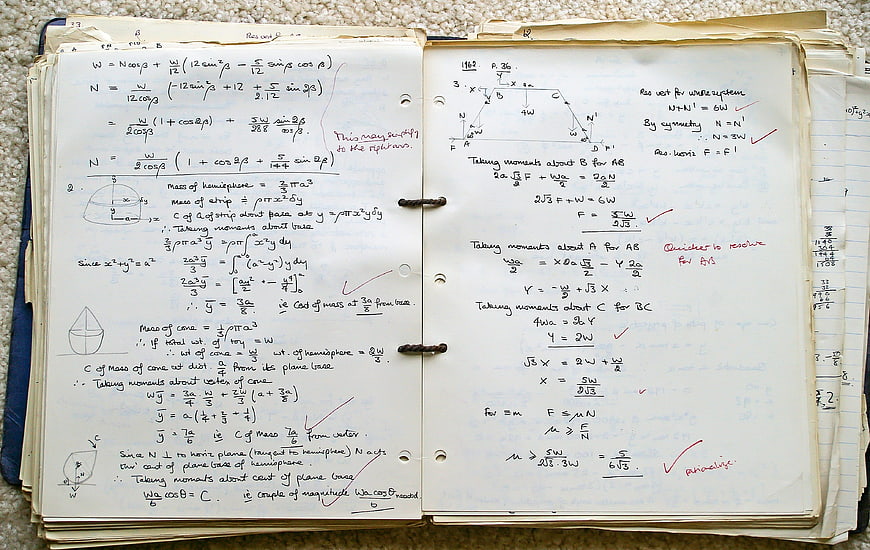 W = Ncosβ + W/12 (12 sin²β − 5/12 sinβ cosβ)
N = W/12cosβ (−12sin²β + 12 + 5/2.12 sin2β)
= W/2cosβ (1 + cos2β) + 5W/288 sin2β/cosβ.
N = W/2cosβ (1 + cos2β + 5/144 sin2β)
This may simplify
to the right ans.
2.
Mass of hemisphere = 2/3 πa³
Mass of strip ≡ ρπx²δy
C of G of strip about base at y = ρπx²yδy
∴ Taking moments about base
2/3 ρπa³ȳ = ρπ∫x²y dy
Since x²+y² = a²
2a³ȳ/3 = ∫(a²−y²)y dy
ȳ = 3a/8. ie Cent of mass at 3a/8 from base.
Mass of cone = 1/3 ρπa³
∴ If total wt. of toy = W
∴ wt of cone = W/3 wt. of hemisphere = 2W/3.
C of Mass of cone at dist. a/4 from its plane base
∴ Taking moments about vertex of cone
Wȳ = 3a/4 W/3 + 2W/3 (a + 3a/8)
ȳ = a(1/4 + 2/3 + 1/4)
ȳ = 7a/6 ie C of Mass 7a/6 from vertex.
Since N ⊥ to horiz plane (tangent to hemisphere) N acts
thro' cent of plane base of hemisphere.
∴ Taking moments about cent of plane base
Wa/6 cosθ = C. ie couple of magnitude Wa cosθ/6 needed
C
N
W
1962. P.36
3.
Y
X
B
C
4W
N
N'
W
W
F
A
D
F'
Res vert for whole system
N+N' = 6W
By symmetry N = N'
∴ N = 3W
Res. horiz F = F'
Taking moments about B for AB
2a√3/2 F + Wa/2 = 2aN/2
2√3F + W = 6W
F = 5W/2√3.
Taking moments about A for AB
Quicker to resolve
for AB
Wa/2 = X2a√3/2 − Y 2a/2
Y = −W/2 + √3X
Taking moments about C for BC
4Wa = 2aY
Y = 2W
√3X = 2W + W/2
X = 5W/2√3
for eqm F ≤ μN
μ ≥ F/N
μ ≥ 5W/2√3.3W = 5/6√3.
rationalize